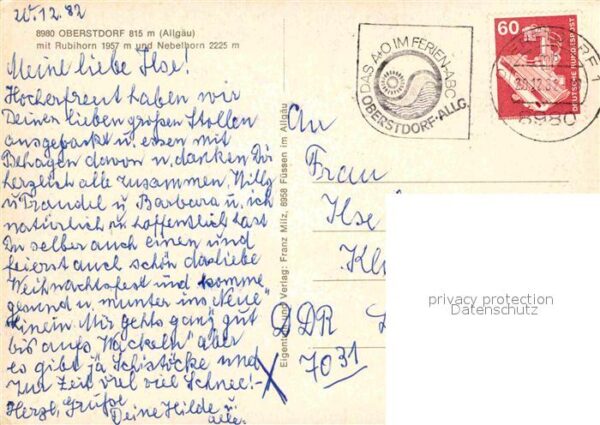 20.12.82
8980 OBERSTDORF 815 m (Allgäu)
mit Rubihorn 1957 m und Nebelhorn 2225 m
Meine liebe Ilse!
Hocherfreut haben wir
Deinen lieben großen Stollen
ausgepackt u. essen mit
Behagen davon u. danken Dir
herzlich alle zusammen, Willy
u. Traudel u. Barbara u. ich
natürlich, u. hoffentlich hast
Du selber auch einen und
feierst auch schön das liebe
Weihnachtsfest und komme
gesund u. munter ins "Neue"
hinein. Mir gehts ganz gut
bis aufs "Wackeln" aber
es gibt ja Schistöcke und
zur Zeit viel viel Schnee!-
Herzl. Grüße
Deine Hilde u.
alle.
Eigentum und Verlag: Franz Milz, 8958 Füssen im Allgäu
DAS A+O IM FERIEN-ABC
OBERSTDORF-ALLG.
60
DEUTSCHE BUNDESPOST
8980
An
Frau
Ilse
DDR
7031
privacy protection
Datenschutz